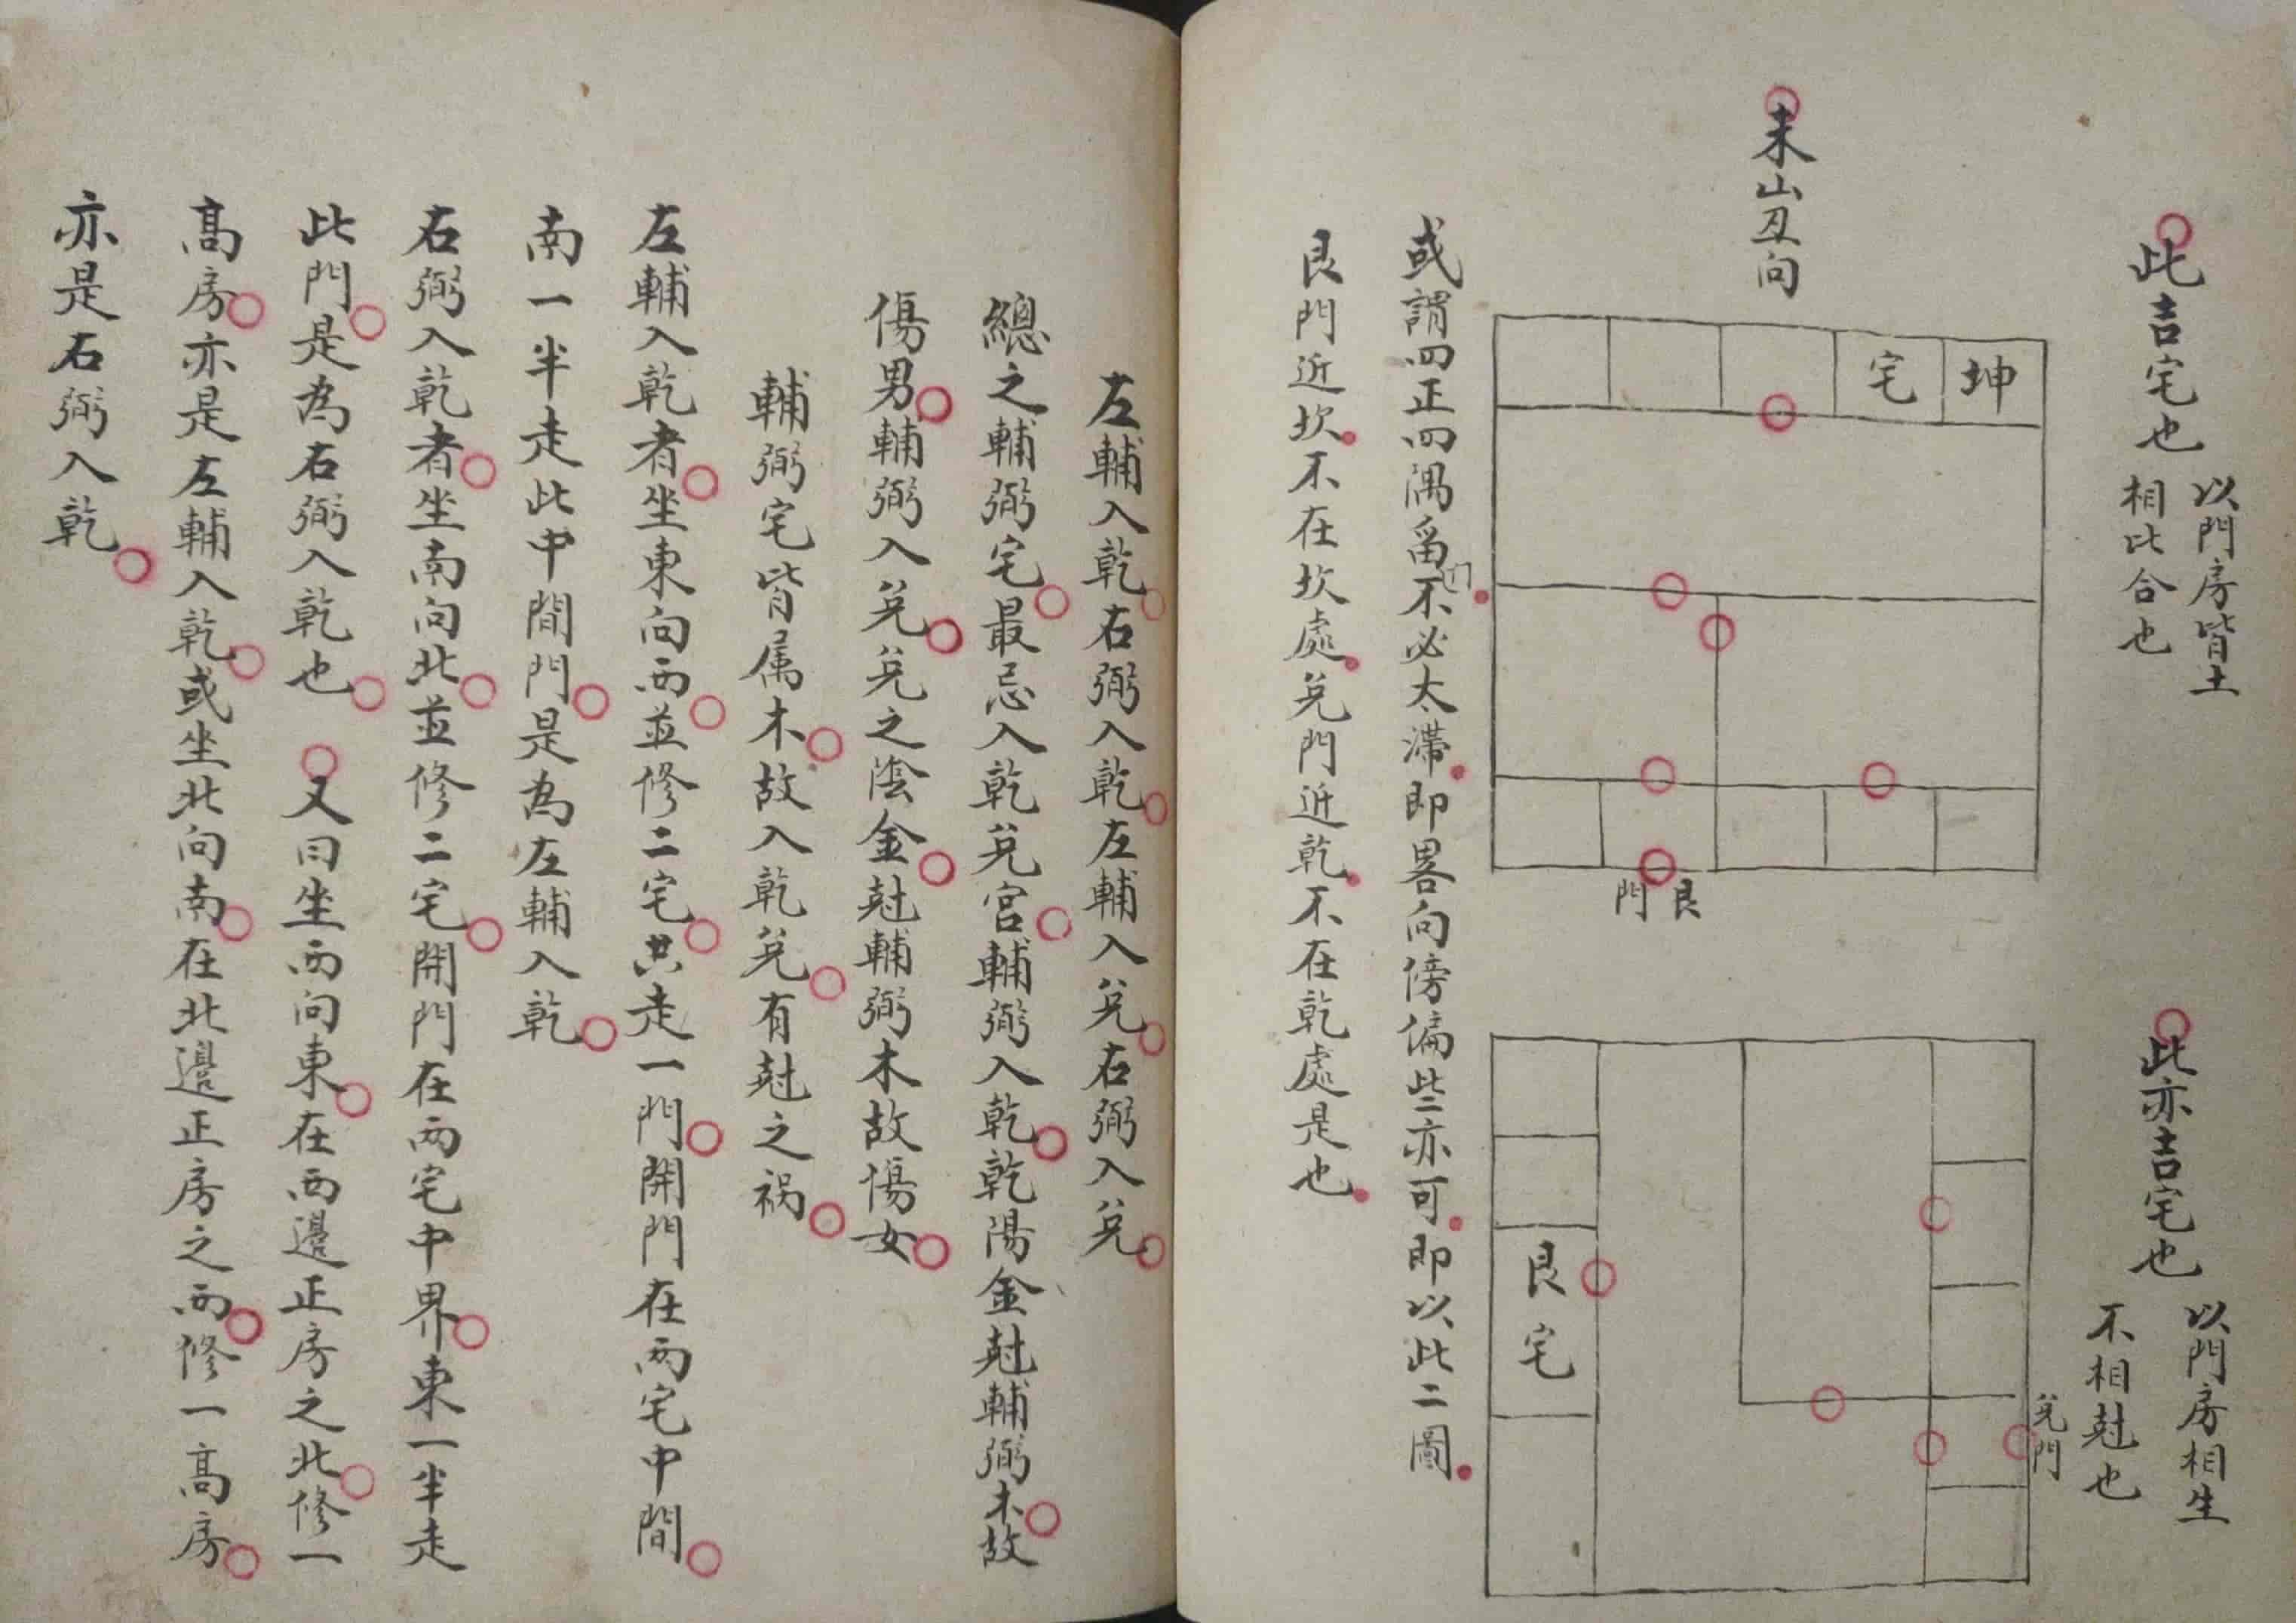 此吉宅也
以門房皆土
相比合也
未山丑向
坤
宅
艮門
此亦吉宅也
以門房相生
不相尅也
艮宅
兌門
或謂四正四隅畱門不必太滯即畧向傍偏些亦可即以此二圖
艮門近坎不在坎處兌門近乾不在乾處是也
左輔入乾右弼入乾左輔入兌右弼入兌
總之輔弼宅最忌入乾兌宮輔弼入乾乾陽金尅輔弼木故
傷男輔弼入兌兌之陰金尅輔弼木故傷女
輔弼宅皆属木故入乾兌有尅之禍
左輔入乾者坐東向西並修二宅共走一門開門在兩宅中間
南一半走此中間門是為左輔入乾
右弼入乾者坐南向北並修二宅開門在兩宅中界東一半走
此門是為右弼入乾也 又曰坐西向東在西邊正房之北修一
高房亦是左輔入乾或坐北向南在北邊正房之西修一高房
亦是右弼入乾